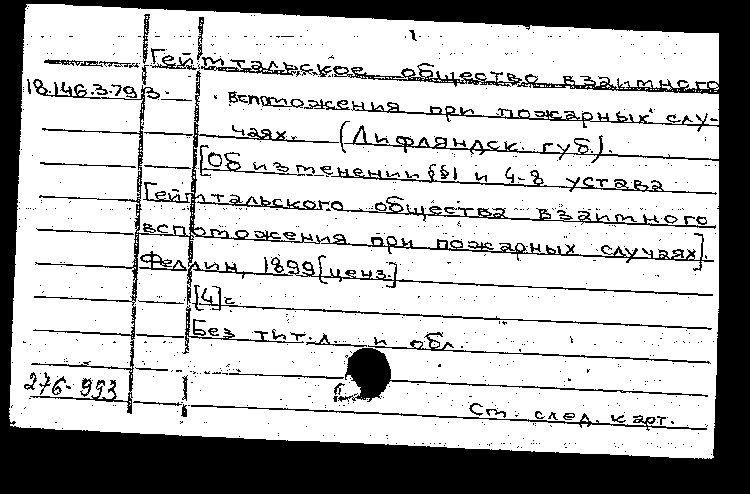 1
Геймтальское общество взаимного
18.146.3.79 вспоможения при пожарных слу-
чаях. (Лифляндск. губ.).
[Об изменении §§1 и 4-8 устава
Геймтальского общества взаимного
вспоможения при пожарных случаях].
Феллин, 1899 [ценз.]
[4] с.
Без тит. л. и обл.
276-993
См. след. карт.